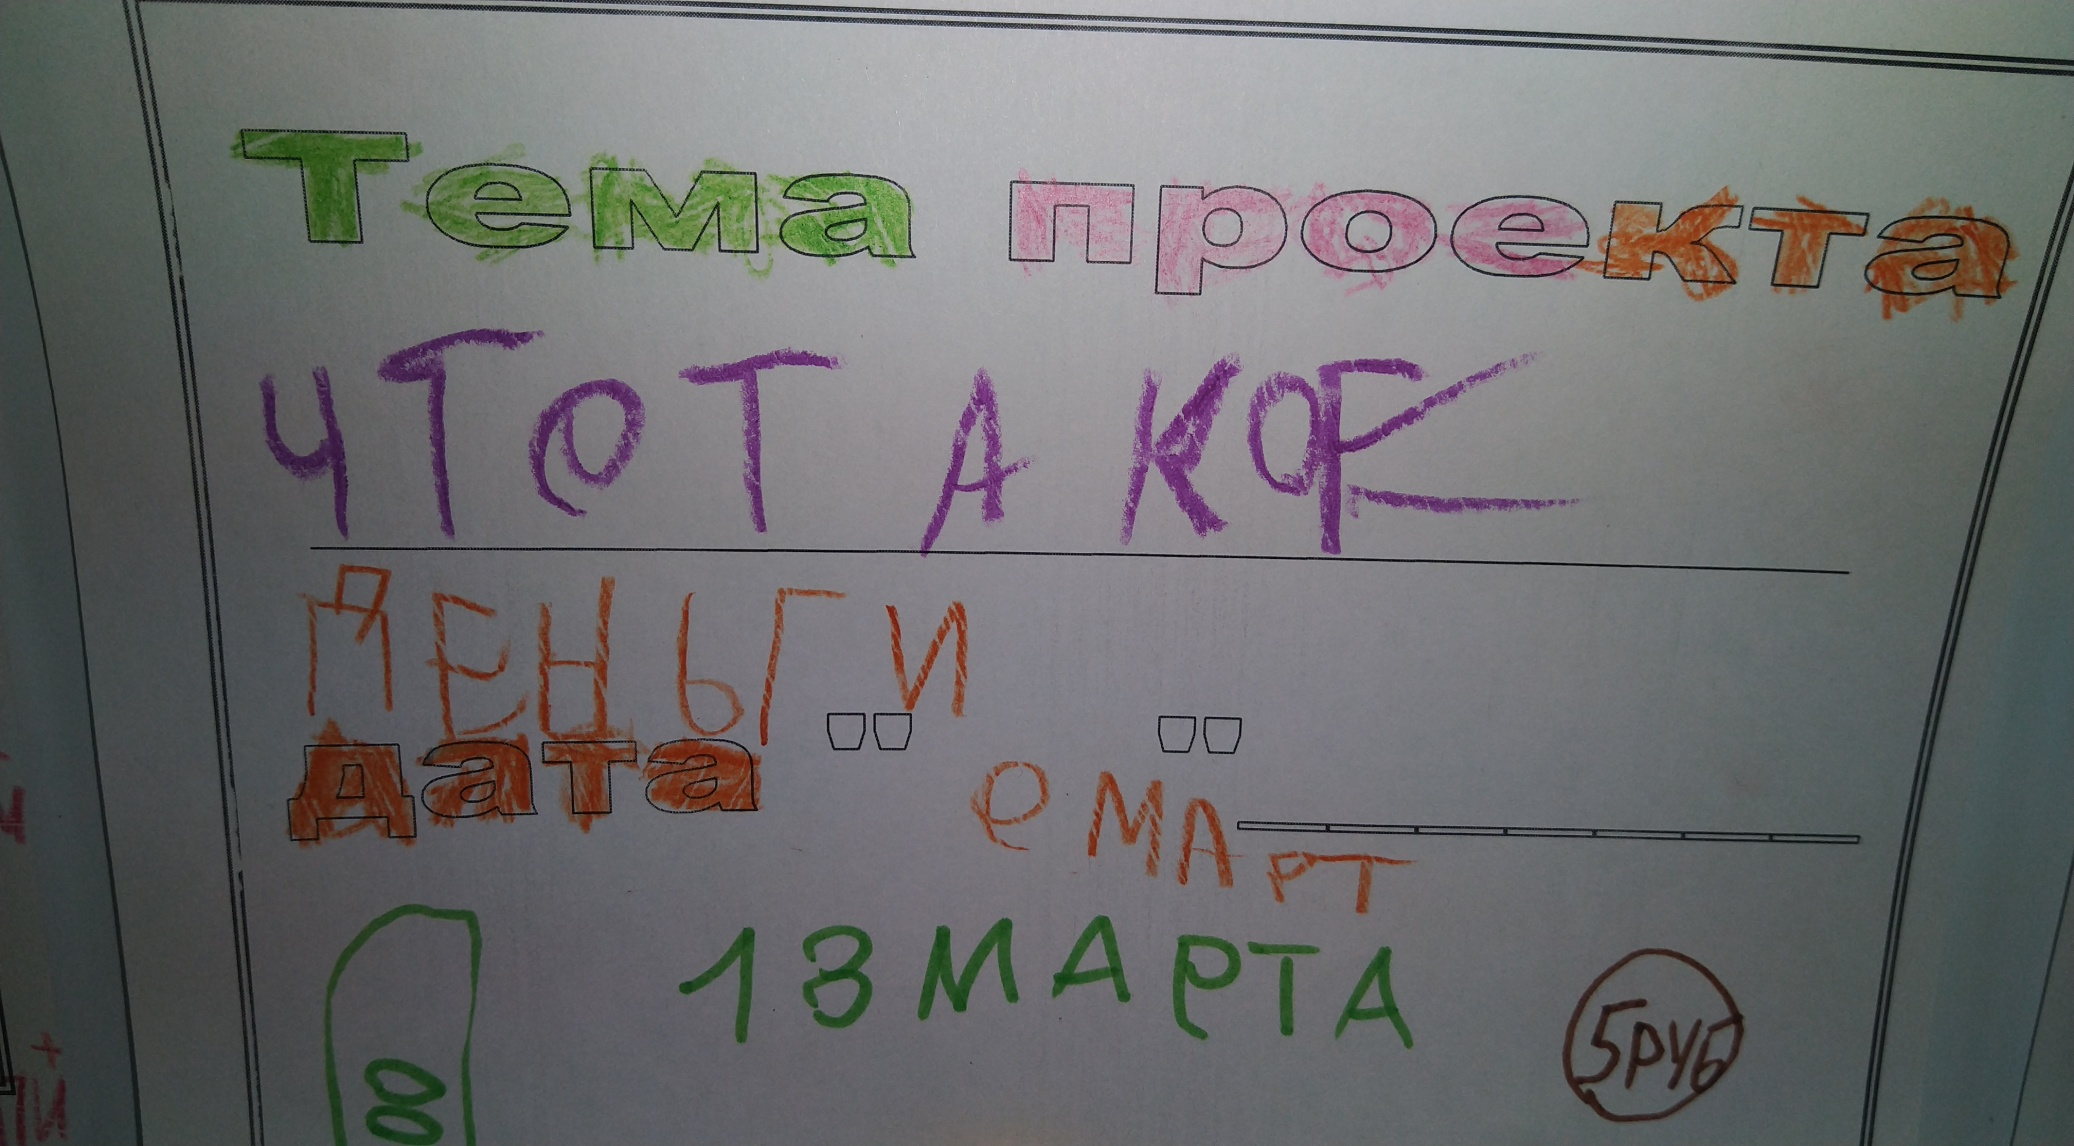 Тема проекта
ЧТО ТАКОЕ
ДЕНЬГИ
Дата
е МАРТ
13 МАРТА
5 РУБ